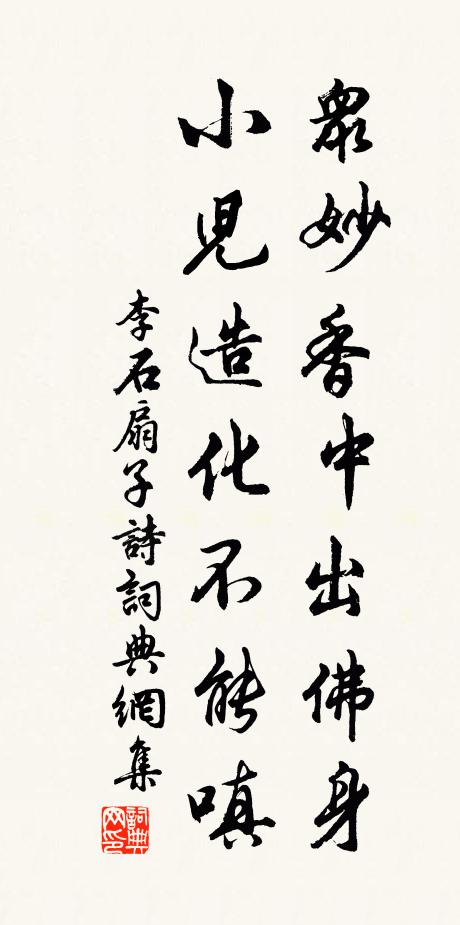 眾妙香中出佛身
小兒造化不能嗔
李石扇子詩詞典網集
詞典网印